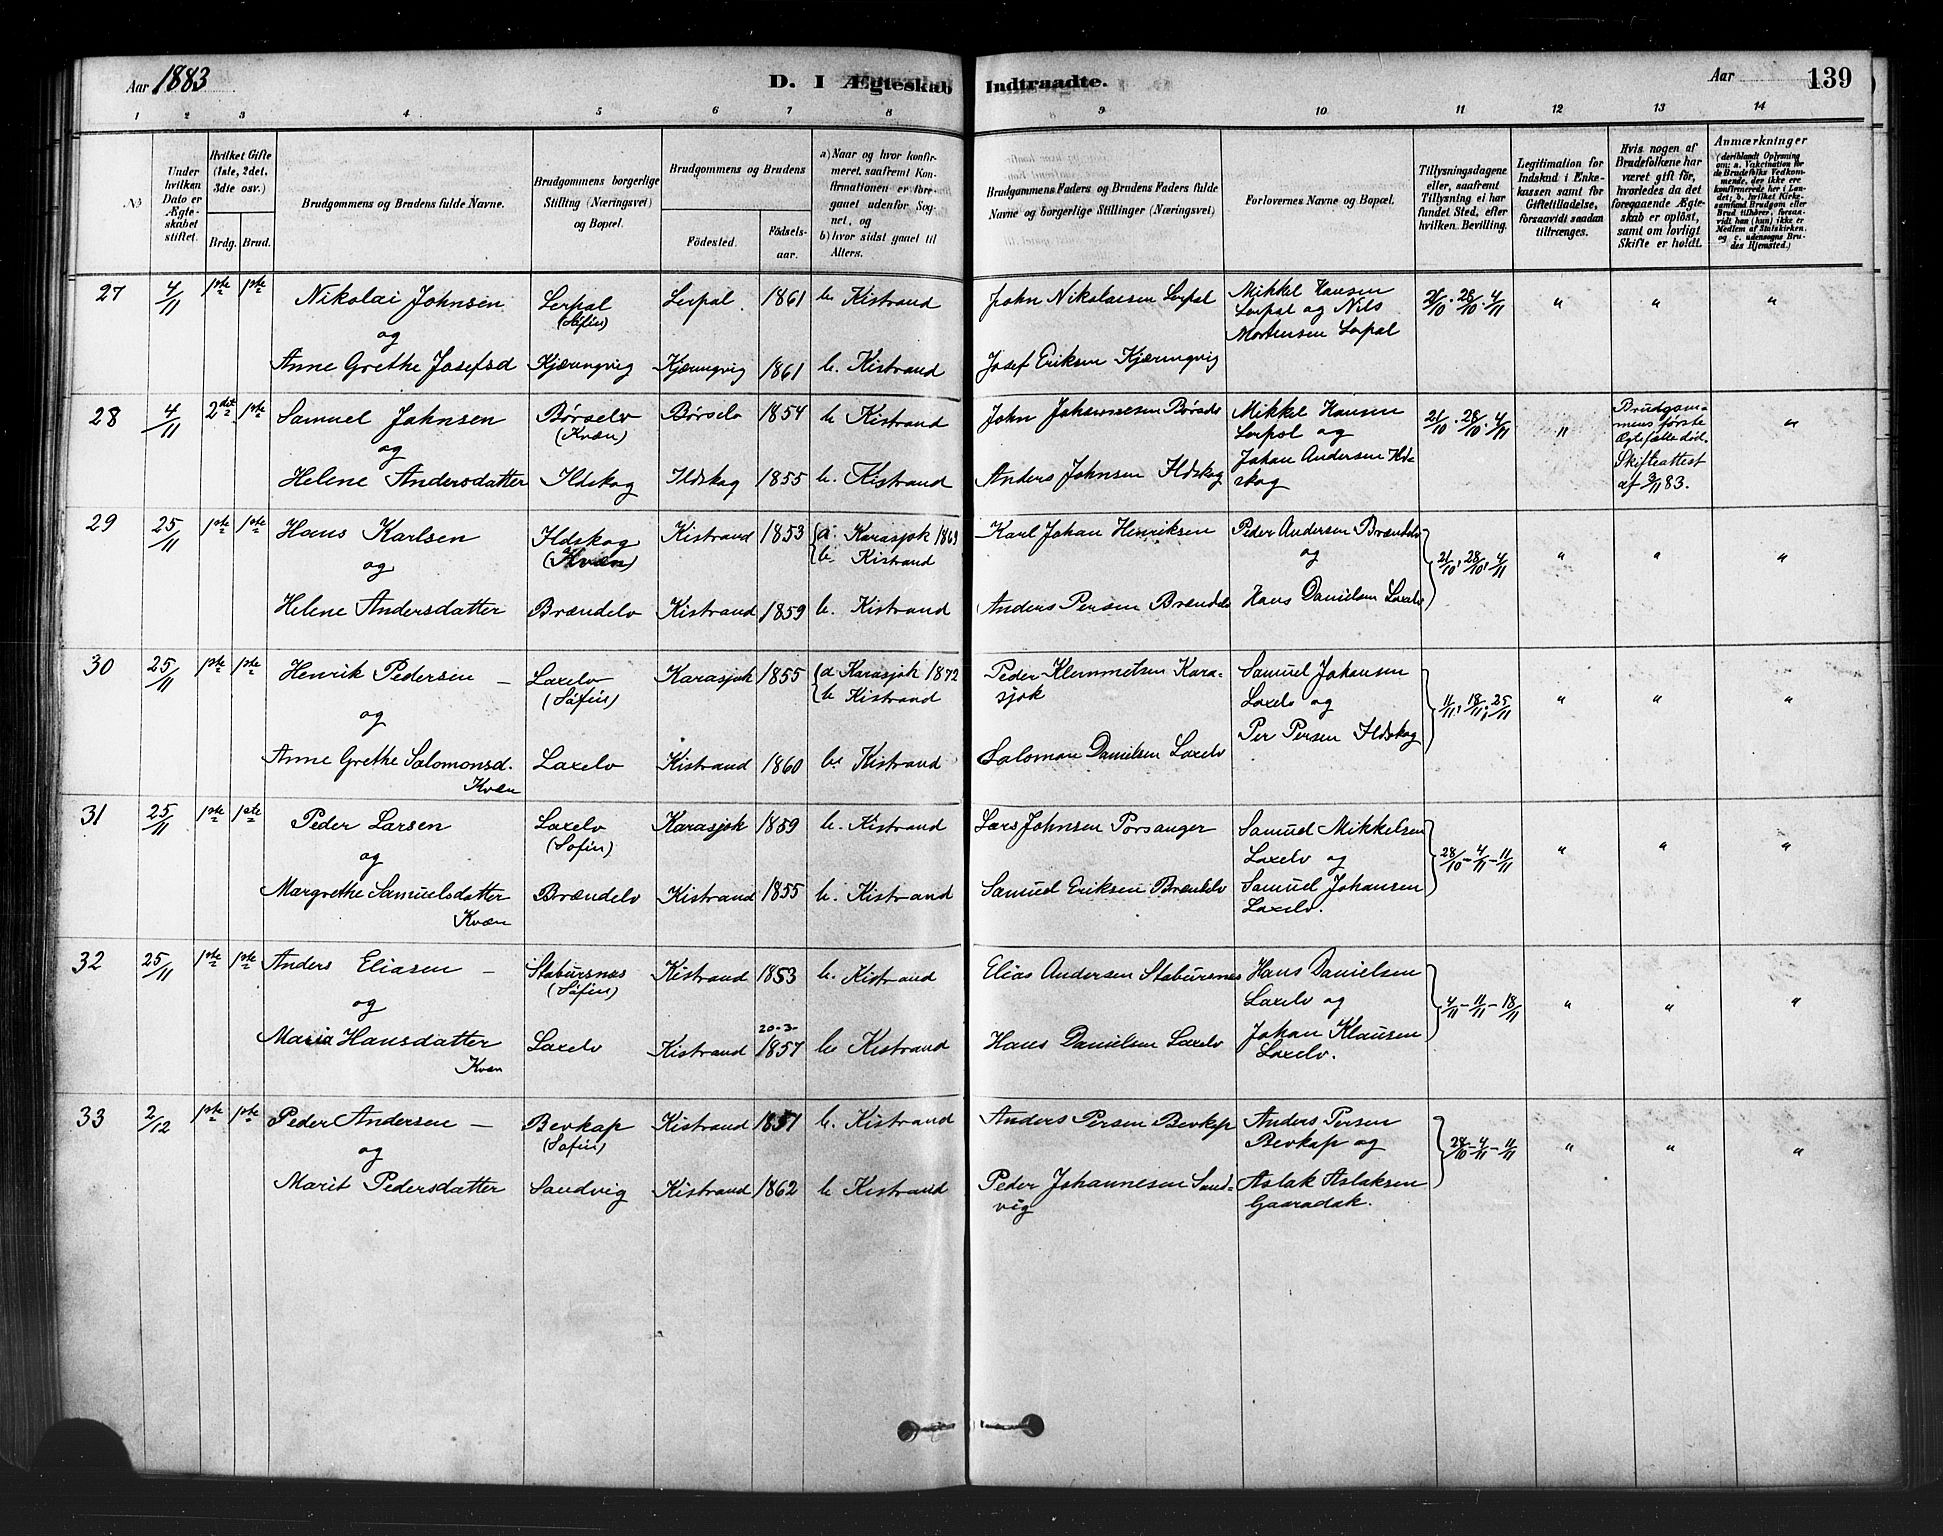 Aar 1883 D. I Ægteskab Indtraadte. Aar 139
1 2 3 4 5 6 7 8 9 10 11 12 13 14
No
Under hvilken Dato er Ægteskabet stiftet.
Hvilket Gifte (1ste, 2det, 3die osv.)
Brdg. Brud.
Brudgommens og Brudens fulde Navne.
Brudgommens borgerlige Stilling (Næringsvei) og Bopæl.
Brudgommens og Brudens
Födested. Födselsaar.
a) Naar og hvor konfirmeret, saafremt Konfirmationen er foregaaet udenfor Sognet, og
b) hvor sidst gaaet til Alters.
Brudgommens Faders og Brudens Faders fulde Navne og borgerlige Stillinger (Næringsvei)
Forlovernes Navne og Bopæl.
Tillysningsdagene eller, saafremt Tillysning ei har fundet Sted, efter hvilken Bevilling.
Legitimation for Indskud i Enkekassen samt for Giftetilladelse, forsaavidt saadan tiltrænges.
Hvis nogen af Brudefolkene har været gift för, hvorledes da det foregaaende Ægteskab er oplöst, samt om lovligt Skifte er holdt.
Anmærkninger
(deriblandt Oplysning om: a. Vakcination for de Brudefolks Vedkommende, der ikke ere konfirmerede her i Landet; b. hvilket Kirkesamfund Brudgom eller Brud tilhörer, forsaavidt han (hun) ikke er Medlem af Statskirken, og c. udensogns Brudes Hjemsted.)
27 4/11 1ste 1ste Nikolai Johnsen Lerpal Lerpal 1861 b. Kistrand John Nikolaisen Lerpal Mikkel Hansen 21/10. 28/10. 4/11 " " "
(Söfin) Lerpal og Nils
og Mortensen Lerpal
Anne Grethe Josefsd Kjærringvig Kjærringvig 1861 b. Kistrand Josef Eriksen Kjærringvig
28 4/11 2det 1ste Samuel Johnsen Börselv Börselv 1854 b Kistrand John Johannesen Börselv Mikkel Hansen 21/10. 28/10. 4/11 " Brudgommens förste "
(Kvæn) Lerpol og Ægtefælle död.
og Johan Andersen Ildskog Skifteattest
Helene Andersdatter Ildskog Ildskog 1855 b. Kistrand Anders Johnsen Ildskog af 3/11 83.
29 25/11 1ste 1ste Hans Karlsen Ildskog Kistrand 1853 a. Karasjok 1869 Karl Johan Henriksen Peder Andersen Brændelv 21/10, 28/10, 4/11 " " "
(Kvæn) b. Kistrand
og og
Helene Andersdatter Brændelv Kistrand 1859 b. Kistrand Anders Persen Brændelv Hans Danielsen Laxelv
30 25/11 1ste 1ste Henrik Pedersen – Laxelv Karasjok 1855 a Karasjok 1872 Peder Klemmetsen Karasjok Samuel Johansen 11/11, 18/11, 25/11 " " "
(Söfin) b Kistrand Laxelv og
og Per Persen Ildskog
Anne Grethe Salomonsd. Laxelv Kistrand 1860 b. Kistrand Salomon Danielsen Laxelv
Kvæn
31 25/11 1ste 1ste Peder Larsen Laxelv Karasjok 1859 b. Kistrand Lars Johnsen Porsanger Samuel Mikkelsen 28/10 – 4/11 – 11/11 " " "
(Sofin) Laxelv og
og Samuel Johansen
Margrethe Samuelsdatter Brændelv Kistrand 1855 b. Kistrand Samuel Eriksen Brændelv Laxelv.
Kvæn
32 25/11 1ste 1ste Anders Eliasen – Stabursnæs Kistrand 1853 b. Kistrand Elias Andersen Stabursnes Hans Danielsen 4/11 – 11/11 – 18/11 " " "
(Söfin) Laxelv og
og 20-3- Johan Klausen
Maria Hansdatter Laxelv Kistrand 1857 b. Kistrand Hans Danielsen Laxelv Laxelv.
Kvæn
33 2/12 1ste 1ste Peder Andersen – Bevkap Kistrand 1851 b. Kistrand Anders Persen Bevkap Anders Persen 28/10 – 4/11 – 11/11 " " "
(Sofin) Bevkap og
og Aslak Aslaksen
Marit Pedersdatter Sandvig Kistrand 1862 b Kistrand Peder Johannesen Sandvig Gaaradak.